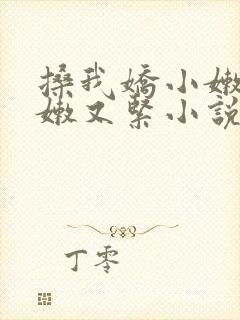 搡我嬌小嫩
嫩又緊小說
丁零